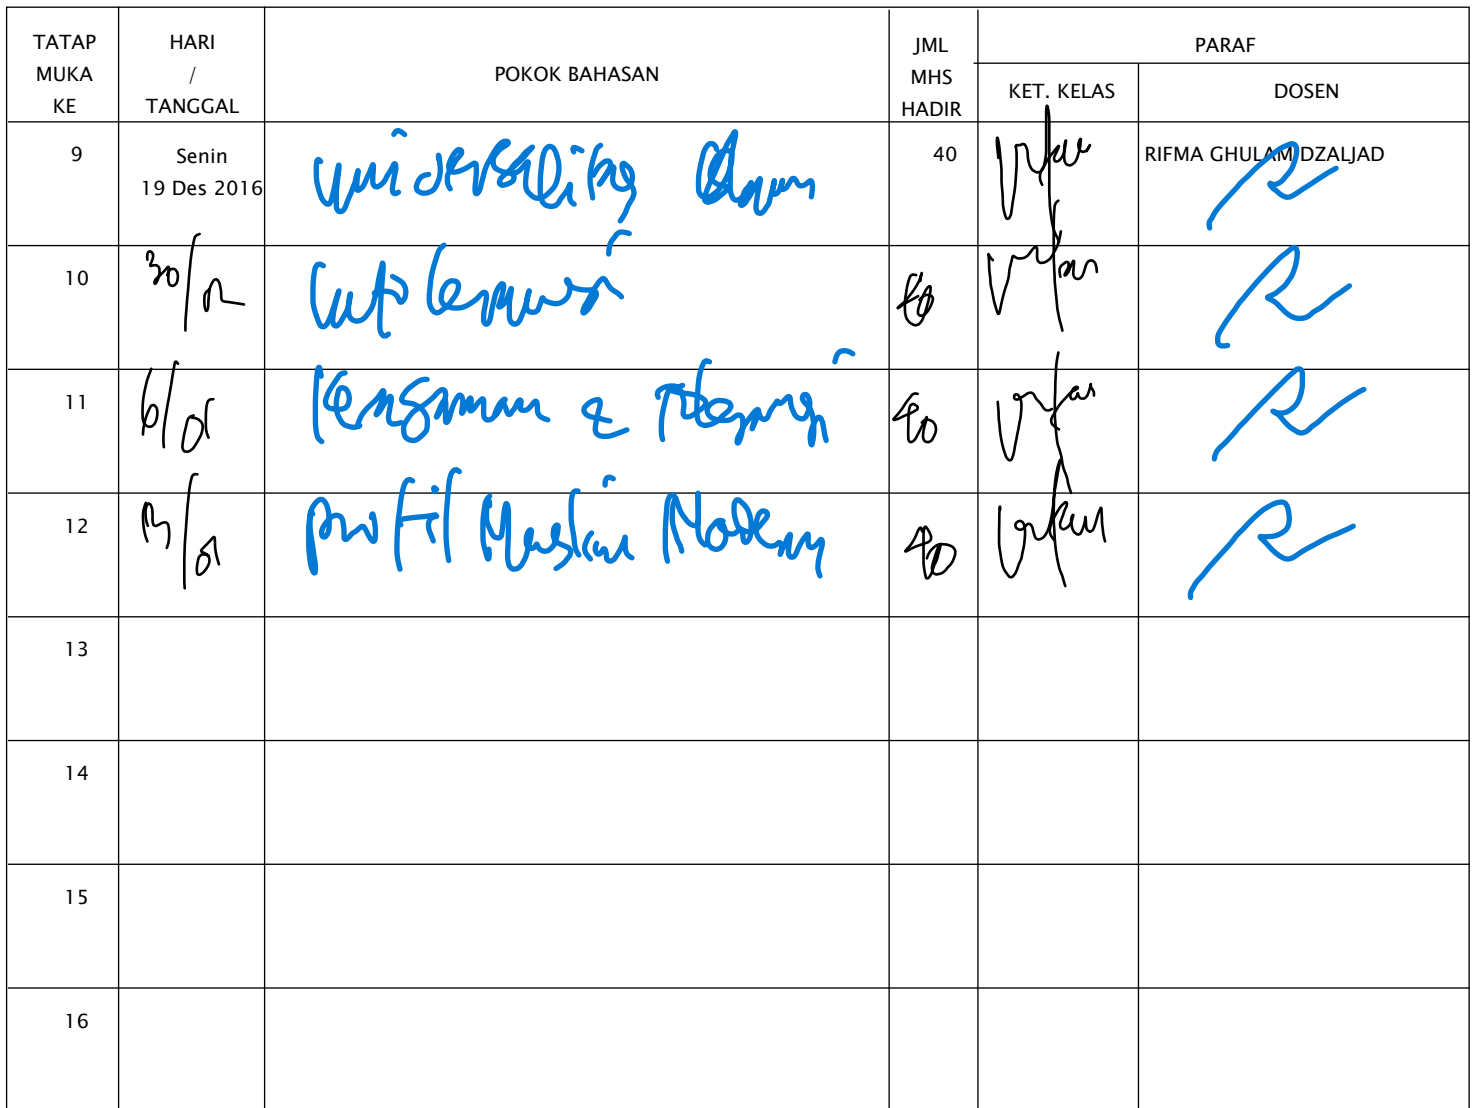 TATAP MUKA KE
HARI / TANGGAL
POKOK BAHASAN
JML MHS HADIR
PARAF
KET. KELAS
DOSEN
9 Senin 19 Des 2016 universalitas 40 RIFMA GHULAM DZALJAD
10 30/12 40
11 6/01 & 40
12 13/01 profil Muslim Modern 40
13
14
15
16